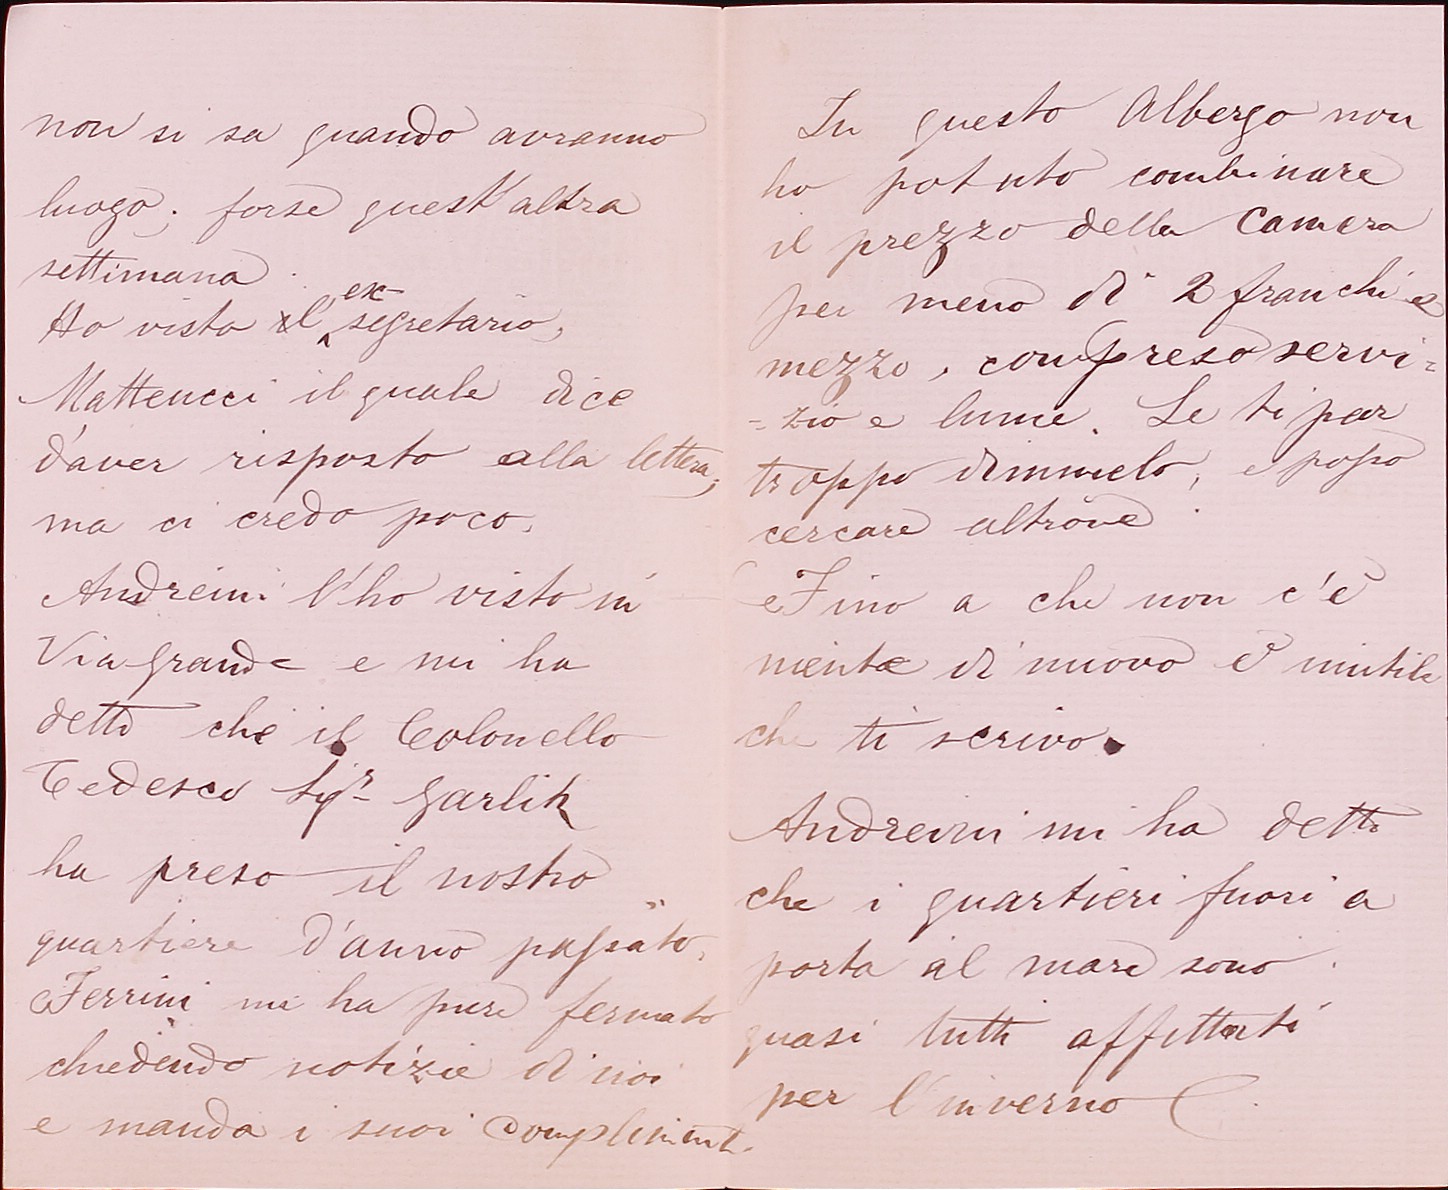 non si sa quando avranno
luogo; forse quest'altra
settimana.
Ho visto il ex-segretario,
Matteucci il quale dice
d'aver risposto alla lettera;
ma ci credo poco.
Andreini l'ho visto in
Via grande e mi ha
detto che il Colonello
Tedesco Sigr Garlik
ha preso il nostro
quartiere d'anno passato.
Ferrini mi ha pure fermato
chiedendo notizie di noi
e manda i suoi complimenti.
In questo Albergo non
ho potuto combinare
il prezzo della Camera
per meno di 2 franchi e
mezzo, compreso servi=
=zio e lume. Se ti par
troppo dimmelo, e posso
cercare altrove.
Fino a che non c'è
niente di nuovo è inutile
che ti scrivo.
Andreini mi ha detto
che i quartieri fuori a
porta al mare sono
quasi tutti affittati
per l'inverno.